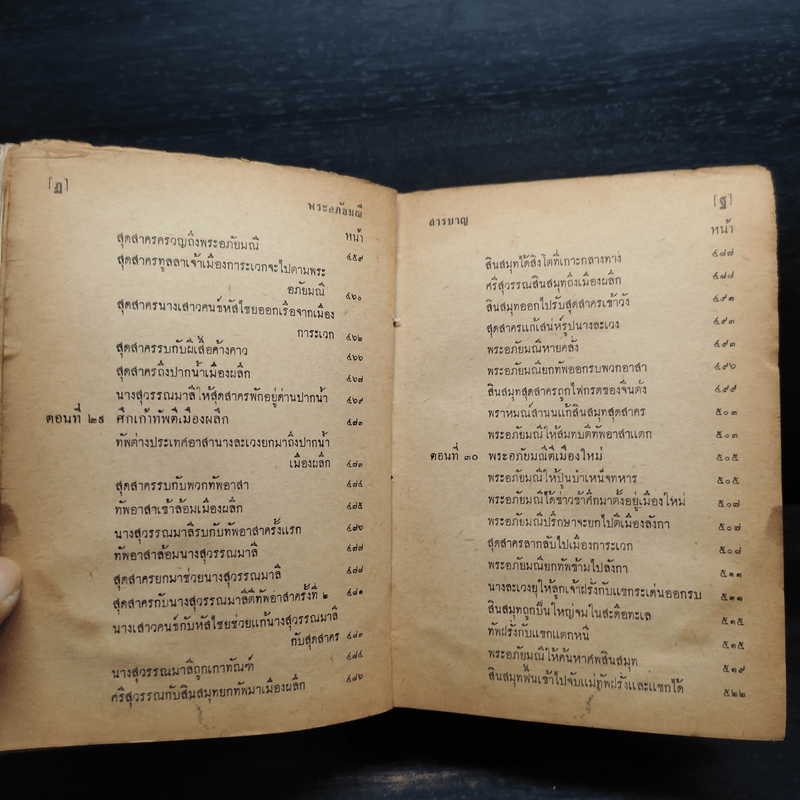 [ฏ]
พระอภัยมณี
หน้า
สุดสาครครวญถึงพระอภัยมณี ๔๕๙
สุดสาครทูลลาเจ้าเมืองการะเวกจะไปตามพระ
อภัยมณี ๔๖๐
สุดสาครนางเสาวคนธ์หัสไชยออกเรือจากเมือง
การะเวก ๔๖๒
สุดสาครรบกับผีเสื้อค้างคาว ๔๖๖
สุดสาครถึงปากน้ำเมืองผลึก ๔๖๗
นางสุวรรณมาลีให้สุดสาครพักอยู่ด่านปากน้ำ ๔๖๙
ตอนที่ ๒๙ ศึกเก้าทัพตีเมืองผลึก ๔๗๓
ทัพต่างประเทศอาสานางละเวงยกมาถึงปากน้ำ
เมืองผลึก ๔๗๓
สุดสาครรบกับพวกทัพอาสา ๔๗๔
ทัพอาสาเข้าล้อมเมืองผลึก ๔๗๕
นางสุวรรณมาลีรบกับทัพอาสาครั้งแรก ๔๗๖
ทัพอาสาล้อมนางสุวรรณมาลี ๔๗๗
สุดสาครยกมาช่วยนางสุวรรณมาลี ๔๗๘
สุดสาครกับนางสุวรรณมาลีตีทัพอาสาครั้งที่ ๒ ๔๘๑
นางเสาวคนธ์กับหัสไชยช่วยแก้นางสุวรรณมาลี
กับสุดสาคร ๔๘๓
นางสุวรรณมาลีถูกเกาทัณฑ์ ๔๘๔
ศรีสุวรรณกับสินสมุทยกทัพมาเมืองผลึก ๔๘๖
[ฐ]
สารบาญ
หน้า
สินสมุทได้สิงโตที่เกาะกลางทาง ๔๘๗
ศรีสุวรรณสินสมุทถึงเมืองผลึก ๔๘๘
สินสมุทออกไปรับสุดสาครเข้าวัง ๔๙๑
สุดสาครแก้เสน่ห์รูปนางละเวง ๔๙๓
พระอภัยมณีหายคลั่ง ๔๙๓
พระอภัยมณียกทัพออกรบพวกอาสา ๔๙๖
สินสมุทสุดสาครถูกไฟกรดของจีนตั๋ง ๔๙๙
พราหมณ์สานนแก้สินสมุทสุดสาคร ๕๐๓
พระอภัยมณีให้สมทบตีทัพอาสาแตก ๕๐๓
ตอนที่ ๓๐ พระอภัยมณีตีเมืองใหม่ ๕๐๕
พระอภัยมณีให้ปูนบำเหน็จทหาร ๕๐๕
พระอภัยมณีได้ข่าวข้าศึกมาตั้งอยู่เมืองใหม่ ๕๐๗
พระอภัยมณีปรึกษาจะยกไปตีเมืองลังกา ๕๐๗
สุดสาครลากลับไปเมืองการะเวก ๕๐๘
พระอภัยมณียกทัพข้ามไปลังกา ๕๑๑
นางละเวงยุให้ลูกเจ้าฝรั่งกับแขกระเด่นออกรบ ๕๑๑
สินสมุทถูกปืนใหญ่จมในสะดือทะเล ๕๑๕
ทัพฝรั่งกับแขกแตกหนี ๕๑๕
พระอภัยมณีให้ค้นหาศพสินสมุท ๕๑๙
สินสมุทฟื้นเข้าไปจับแม่ทัพฝรั่งและแขกได้ ๕๒๒